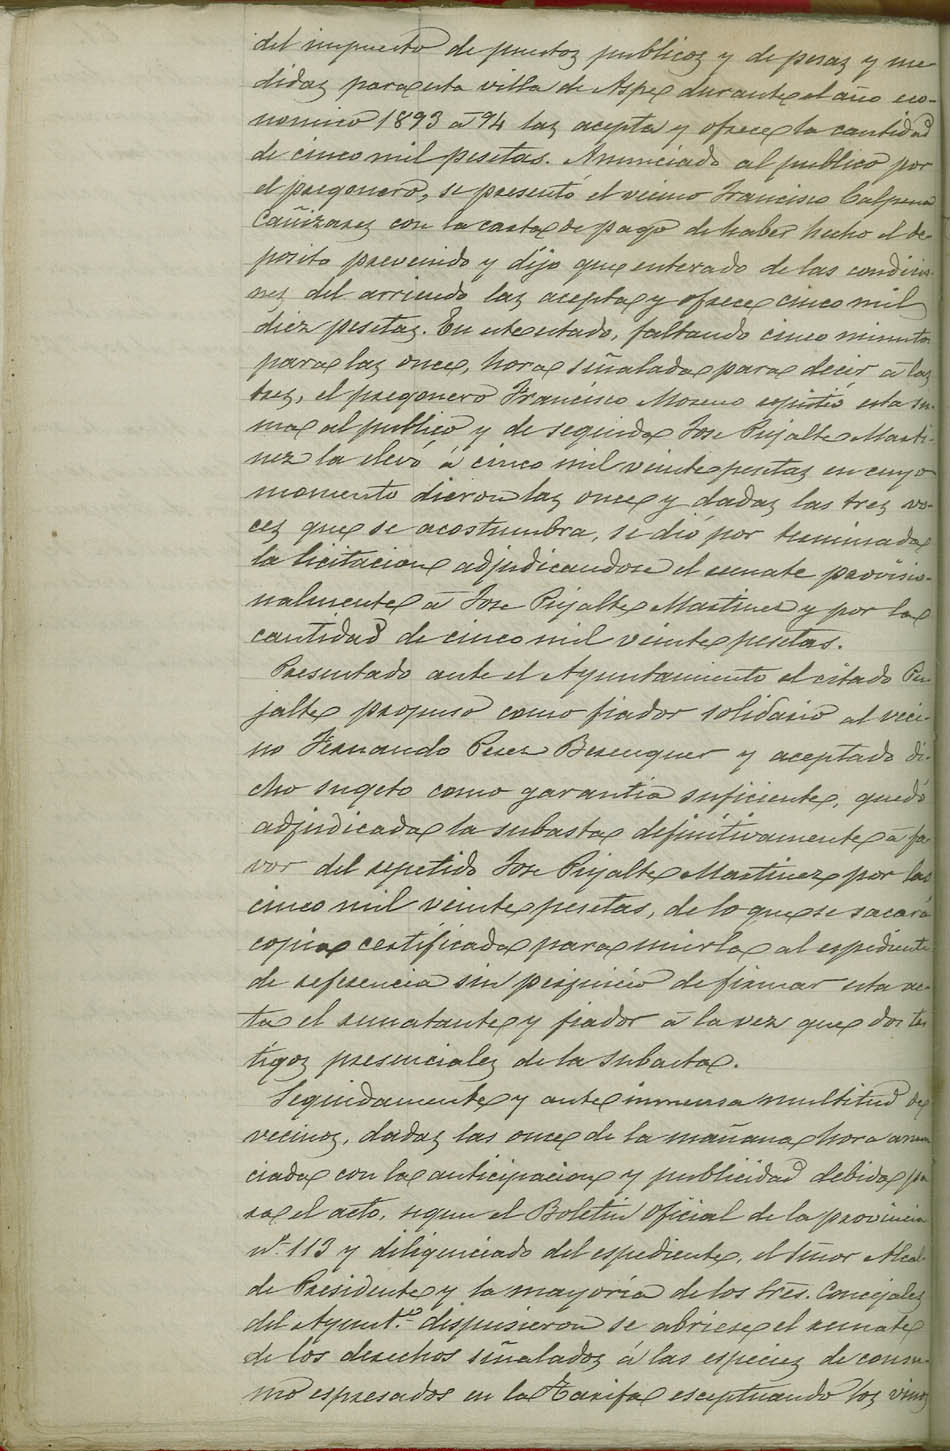 del impuesto de puestos publicos y de pesas y me-
didas para esta villa de Aspe durante el año eco-
nomico 1893 á 94 las acepta y ofrece la cantidad
de cinco mil pesetas. Anunciado al publico por
el pregonero, se presentó el vecino Francisco Calpena
Cañizares con la carta de pago de haber hecho el de-
posito prevenido y dijo que enterado de las condicio-
nes del arriendo las acepta y ofrece cinco mil
diez pesetas. En este estado, faltando cinco minutos
para las once, hora señalada para decir á las
tres, el pregonero Francisco Moreno repitió esta su-
ma al publico y de seguida Jose Pujalte Marti-
nez la elevó á cinco mil veinte pesetas en cuyo
momento dieron las once y dadas las tres vo-
ces que se acostumbra, se dió por terminada
la licitacion adjudicandose el remate provisio-
nalmente á Jose Pujalte Martinez y por la
cantidad de cinco mil veinte pesetas.
Presentado ante el Ayuntamiento el citado Pu-
jalte propuso como fiador solidario al veci-
no Fernando Perez Berenguer y aceptado di-
cho sugeto como garantia suficiente, quedó
adjudicada la subasta definitivamente á fa-
vor del repetido Jose Pujalte Martinez por las
cinco mil veinte pesetas, de lo que se sacará
copia certificada para unirla al espediente
de referencia sin perjuicio de firmar esta ac-
ta el rematante y fiador á la vez que dos tes-
tigos presenciales de la subasta.
Seguidamente y ante inmensa multitud de
vecinos, dadas las once de la mañana hora anun-
ciada con la anticipacion y publicidad debida pa-
ra el acto, segun el Boletin Oficial de la provincia
nº 113 y diligenciado del espediente, el Señor Alcal-
de Presidente y la mayoría de los Sres. Concejales
del Ayuntº dispusieron se abriese el remate
de los derechos señalados á las especies de consu-
mo espresados en la Tarifa esceptuando los vinos